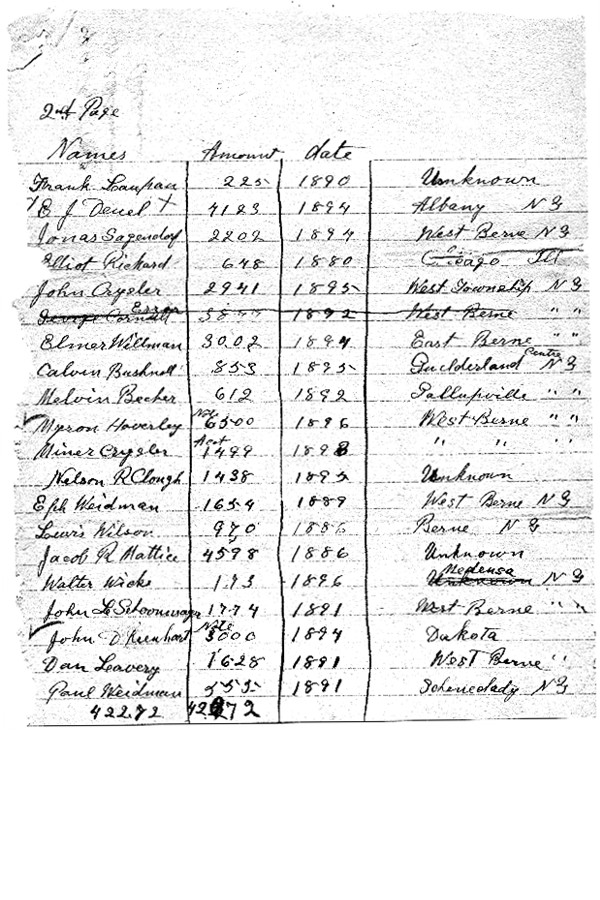 2nd Page
Names Amount date
Frank Laupau 225 1890 Unknown
X E J Deuel X 4123 1894 Albany N Y
Jonas Sagendorf 2202 1894 West Berne N Y
Elliot Rickard 648 1880 Chicago Ill
John Crysler 2941 1895 West Township N Y
Error
George Cornell 1892 West Berne " "
Elmer Willman 3002 1894 East Berne " "
Calvin Bushnell 853 1895 Guelderland Centre N Y
Melvin Becker 612 1892 Gallupville " "
Myron Haverley Note 6500 1896 West Berne " "
Miner Crysler Acct 1499 1898 " " " "
Nelson R Clough 1438 1895 Unknown
Eph Weidman 1654 1889 West Berne N Y
Lewis Wilson 970 1886 Berne N Y
Jacob R Mattice 4598 1886 Unknown
Walter Wicks 193 1896 Unknown Medusa N Y
John L Schoonmaker 1774 1891 West Berne " "
John D Rienhart Note 3000 1894 Dakota
Dan Leavery 1628 1891 West Berne " "
Paul Weidman 555 1891 Schenectady N Y
42272 42272